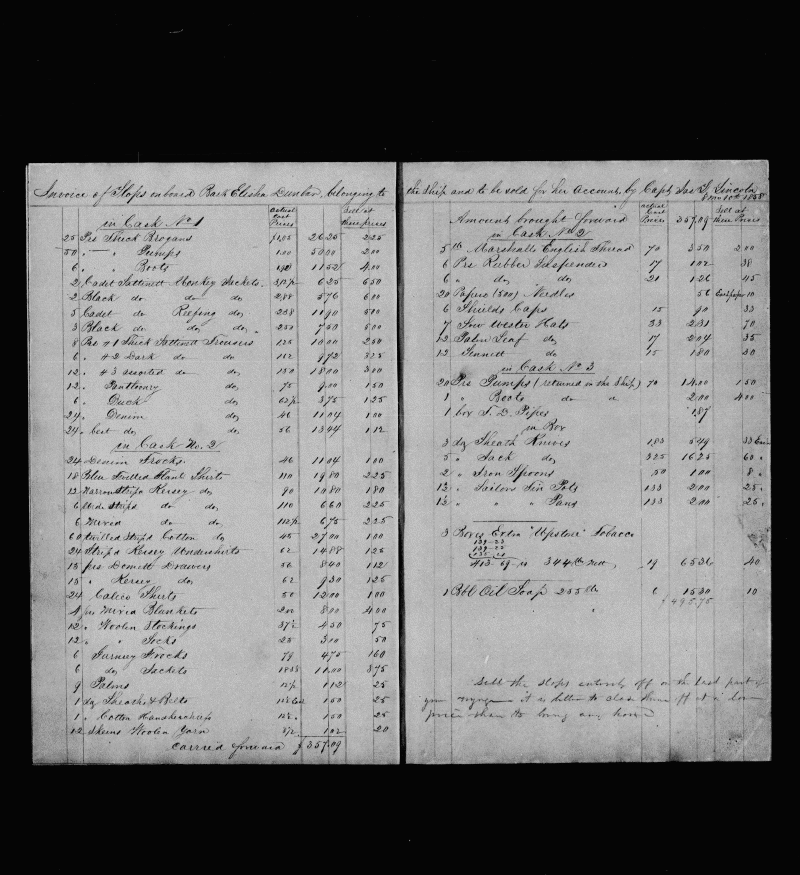 Invoice of Slops onboard Bark Elisha Dunbar, belonging to
actual Cost Prices Sell at these prices
in Cask No 1
25 Prs Thick Brogans $1.05 26.25 2.25
50 . — " Pumps 1.00 50.00 2.00
6 . " Boots 1.92 11.52 4.00
2 Cadet Sattinett Monkey Jackets 3.12½ 6.25 6.50
2 Black do do do 2.88 5.76 6.00
5 Cadet do Reefing do, 2.38 11.90 5.00
3 Black do do do, 2.50 7.50 6.00
8 Prs #1 Thick Sattinett Trousers 1.25 10.00 2.50
6 . #2 Dark do do 1.62 9.72 3.25
12 . #3 assorted do do 1.50 18.00 3.00
12 . do, 75 9.00 1.50
6 . Duck do, 62½ 3.75 1.25
24 . Denim do, 46 11.04 1.00
24 . best do do, 56 13.44 1.12
in Cask No. 2
24 Denim Frocks. 46 11.04 1.00
18 Blue Twilled Flanl Shirts 1.10 19.80 2.25
12 Narrow Stripe Kersey do, 90 10.80 1.80
6 Wide Stripe do do, 1.10 6.60 2.25
6 Mixed do do, 1.12½ 6.75 2.25
60 twilled Stripd Cotton do, 45 27.00 1.00
24 Stripd Kersey Undershirts 62 14.88 1.25
15 prs Domett Drawers 56 8.40 1.12
15 . Kersey do, 62 9.30 1.25
24 Calico Shirts 50 12.00 1.00
4 prs Mixed Blankets 2.00 8.00 4.00
12 . Woolen Stockings 37½ 4.50 75
12 . " Socks 25 3.00 50
6 Gurnsey Frocks 79 4.75 1.60
6 do, Jackets 18.33 11.00 3.75
9 Palms 12½ 1.12 25
1 dz Sheaths & Belts 12½ Each 1.50 25
1 . Cotton Handkerchiefs 12½ . 1.50 25
12 Skeins Woolen Yarn 8½ 1.02 20
Carried forward $357.09
the Ship and to be sold for her Account, by Capt, Jas S, Lincoln
10th 1858
actual Cost Prices 357.09 Sell at these Prices
Amount brought forward
in Cask No 2
5 lb Marshalls English Thread 70 3.50 2.00
6 Prs Rubber Suspenders 17 1.02 38
6 " do, do, 21 1.26 45
20 Papers (500) Needles 56 Each paper 10
6 Shields Caps 15 90 33
7 Sow Wester Hats 33 2.31 70
12 Palm Leaf do, 17 2.04 35
12 Sennett do, 15 1.80 30
in Cask No 3
20 Prs Pumps (returned in the Ship) 70 14.00 1.50
1 " Boots do " 2.00 4.00
1 box T. D. Pipes 1.87
in Box
3 dz Sheath Knives 1.83 5.49 33 Each
5 . Jack do, 3.25 16.25 60 "
2 . Iron Spoons 50 1.00 8 "
1½ . Sailors Tin Pots 1.33 2.00 25 .
1½ " " " Pans 1.33 2.00 25 .
3 Boxes Extra "Upstone" Tobacco
139-23
139-22
413 69 is 344 lb nett, 19 65.36 40
1 Bbl Oil Soap 255 lbs 6 15.30 10
$495.75
Sell the slops entirely off on the last part of
your voyage it is better to close them off at a low
price than to bring any home